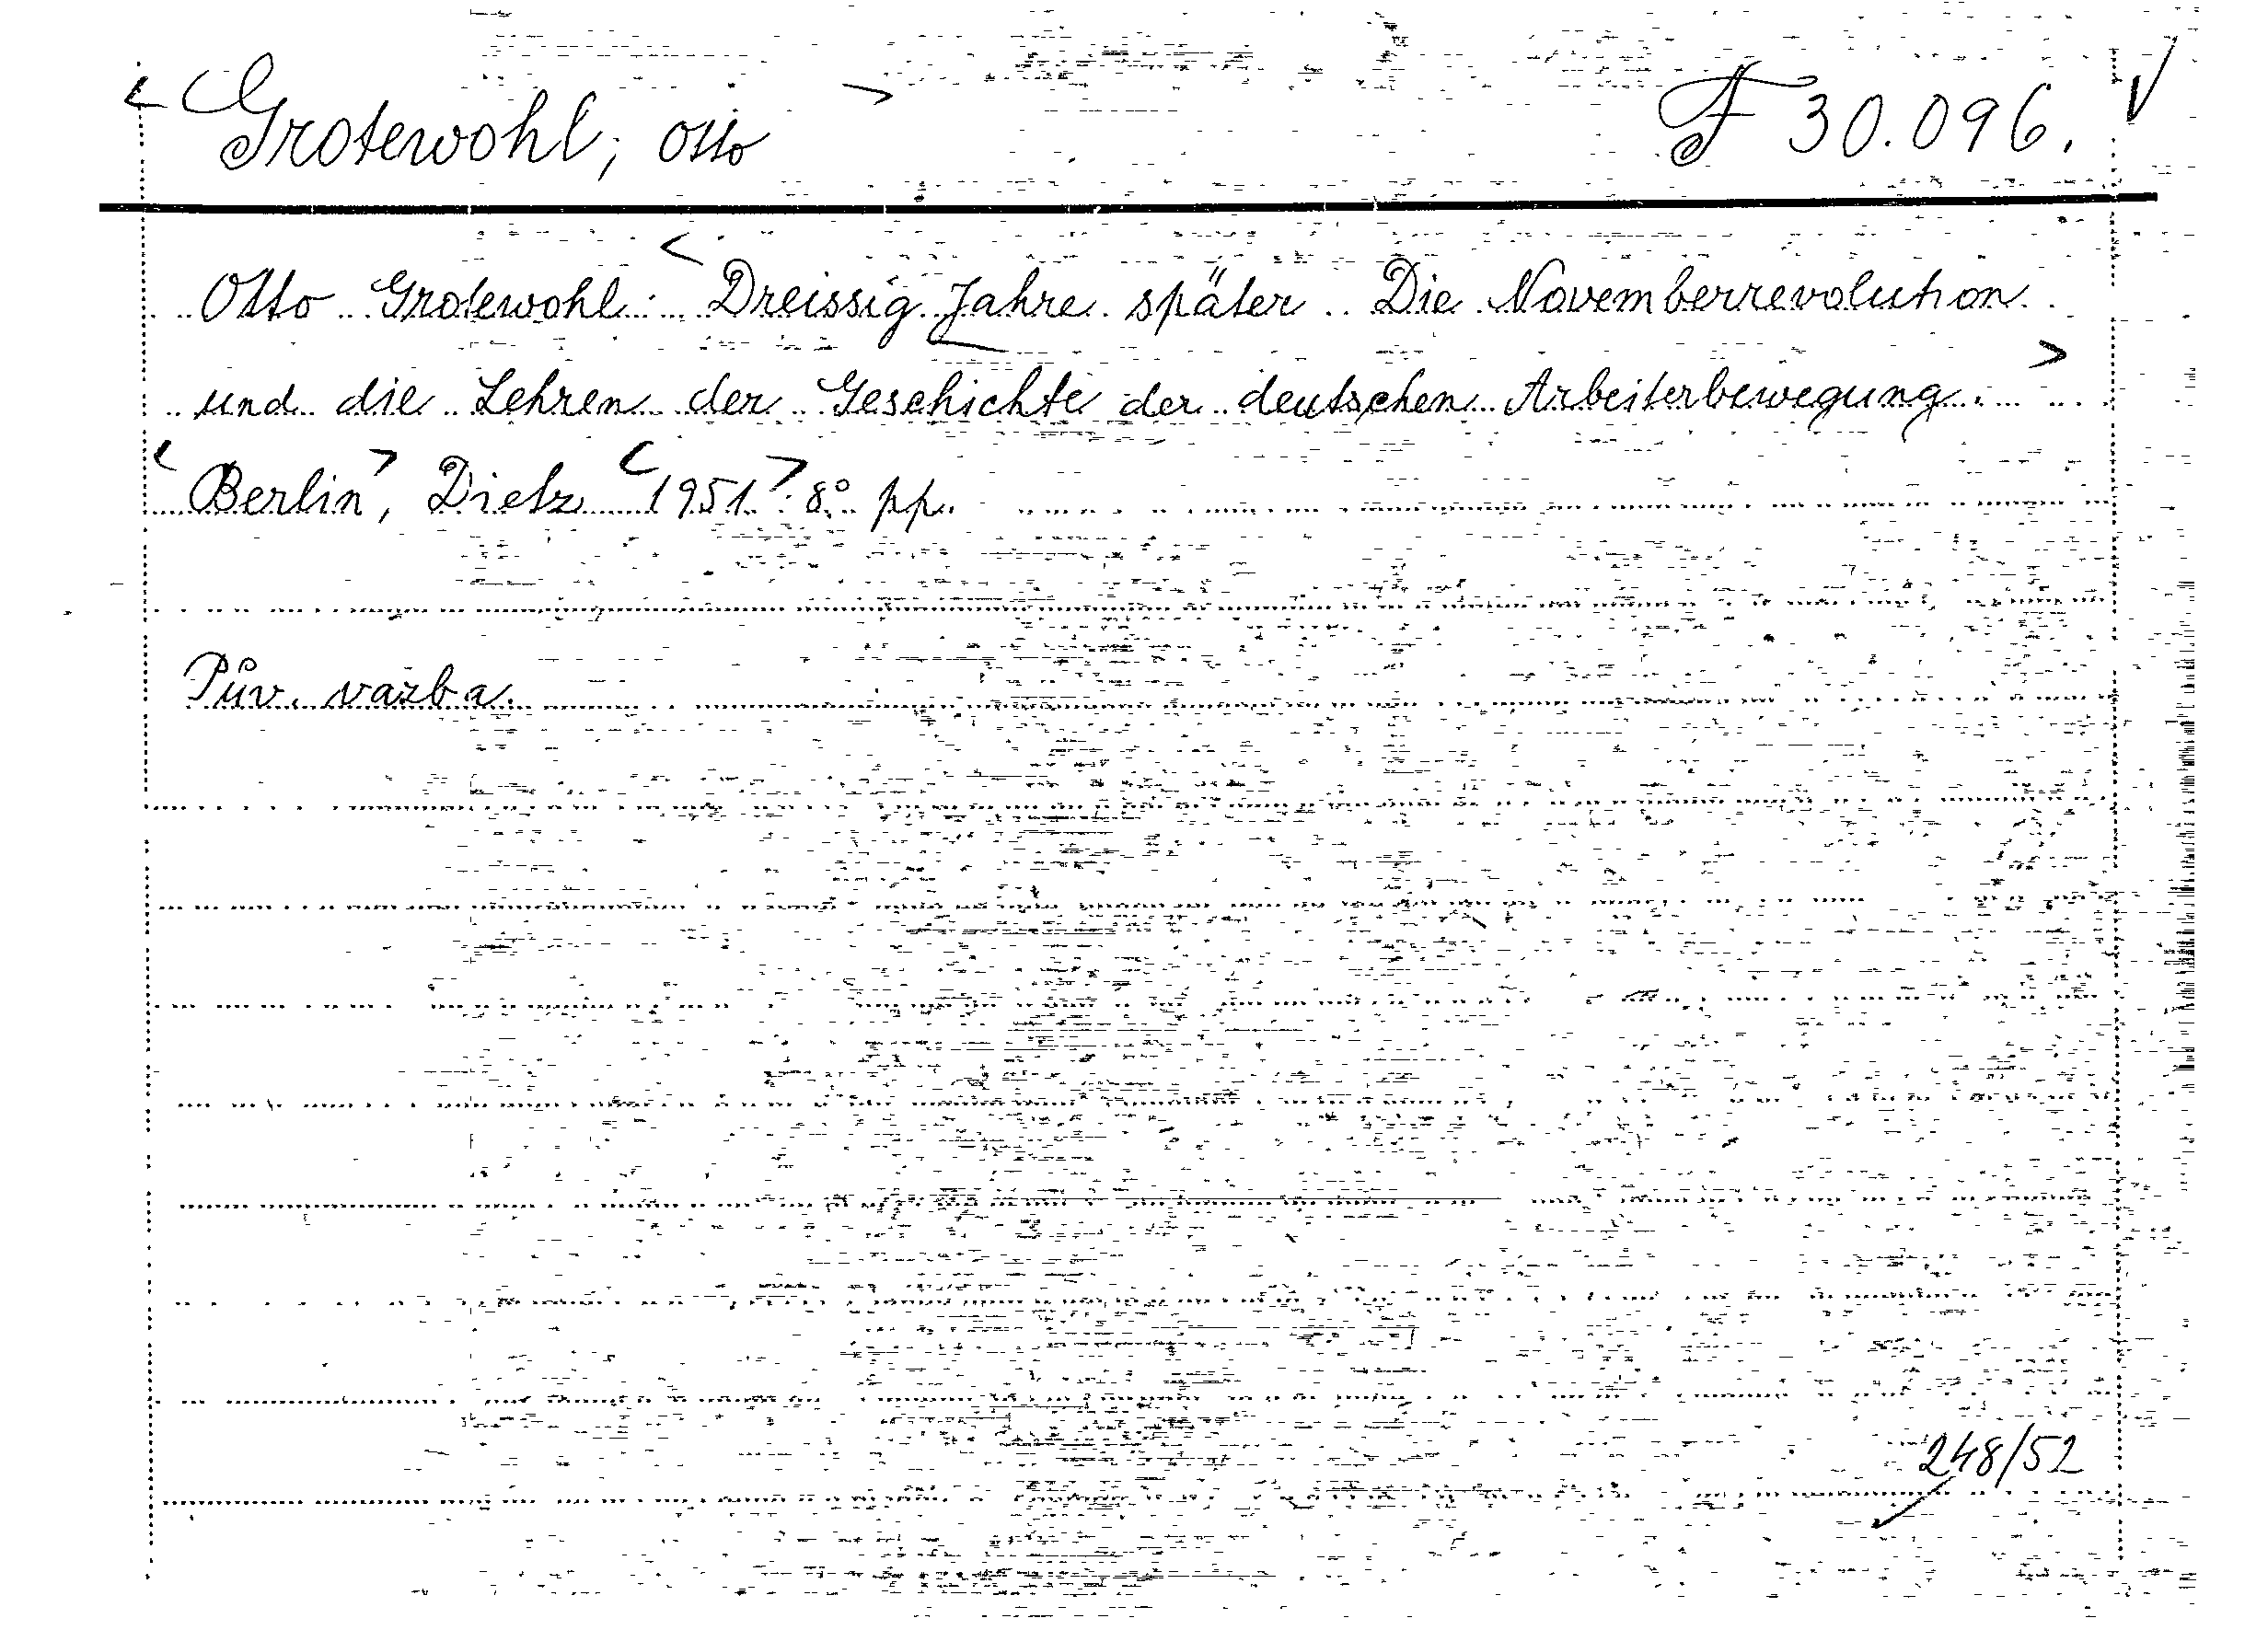 < Grotewohl, Otto > F 30.096. √
Otto Grotewohl: < Dreissig Jahre später. Die Novemberrevolution
und die Lehren der Geschichte der deutschen Arbeiterbewegung. >
< Berlin >, Dietz < 1951 >. 8° pp.
Pův. vazba.
248/52